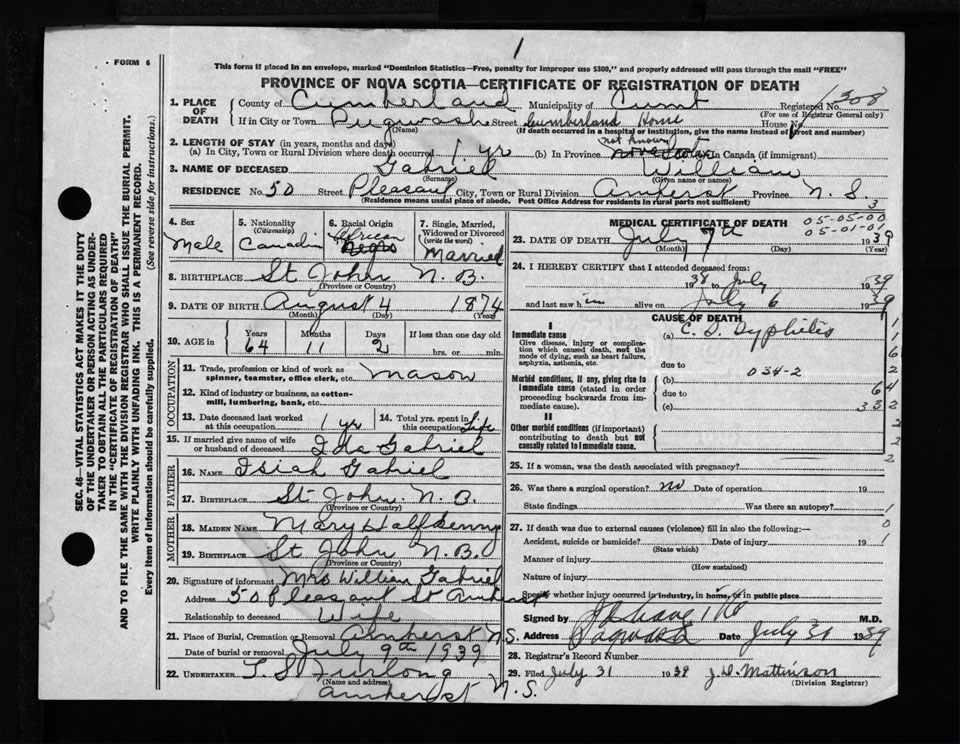 1
FORM 6
This form if placed in an envelope, marked "Dominion Statistics—Free, penalty for improper use $300," and properly addressed will pass through the mail "FREE"
PROVINCE OF NOVA SCOTIA—CERTIFICATE OF REGISTRATION OF DEATH
1. PLACE OF DEATH County of Cumberland Municipality of Cumb Registered No. 1308
(For use of Registrar General only)
If in City or Town Pugwash Street Cumberland Home House No.
(Name) (If death occurred in a hospital or institution, give the name instead of street and number)
2. LENGTH OF STAY (in years, months and days) not known
(a) In City, Town or Rural Division where death occurred 1 yr (b) In Province Nova Scotia In Canada (if immigrant)
3. NAME OF DECEASED Gabriel William
(Surname) (Given name or names)
RESIDENCE No. 50 Street Pleasant City, Town or Rural Division Amherst Province N. S.
(Residence means usual place of abode. Post Office Address for residents in rural parts not sufficient) 3
4. Sex Male
5. Nationality (Citizenship) Canadin
6. Racial Origin African Negro
7. Single, Married, Widowed or Divorced (write the word) Married
8. BIRTHPLACE St John N. B.
(Province or Country)
9. DATE OF BIRTH August 4 1874
(Month) (Day) (Year)
10. AGE in Years 64 Months 11 Days 2 If less than one day old hrs. or min.
OCCUPATION
11. Trade, profession or kind of work as spinner, teamster, office clerk, etc. Mason
12. Kind of industry or business, as cotton-mill, lumbering, bank, etc.
13. Date deceased last worked at this occupation 1 yr
14. Total yrs. spent in this occupation Life
15. If married give name of wife or husband of deceased Ida Gabriel
FATHER
16. NAME Isiah Gabriel
17. BIRTHPLACE St John N. B.
(Province or Country)
MOTHER
18. MAIDEN NAME Mary Halfkenny
19. BIRTHPLACE St John N. B.
(Province or Country)
20. Signature of informant Mrs William Gabriel
Address 50 Pleasant St Amherst
Relationship to deceased Wife
21. Place of Burial, Cremation or Removal Amherst N.S.
Date of burial or removal July 9th 1939
22. UNDERTAKER T. S. Furlong
(Name and address)
Amherst N. S.
MEDICAL CERTIFICATE OF DEATH 05-05-00
05-01-01
23. DATE OF DEATH July 7th 1939
(Month) (Day) (Year)
24. I HEREBY CERTIFY that I attended deceased from:
1938 to July 1939
and last saw him alive on July 6 1939
CAUSE OF DEATH
I
Immediate cause (a) C. S. Syphilis
Give disease, injury or complication which caused death, not the mode of dying, such as heart failure, asphyxia, asthenia, etc.
due to 034-2
Morbid conditions, if any, giving rise to immediate cause (stated in order proceeding backwards from immediate cause).
(b)
due to 64
(c) 332
II
Other morbid conditions (if important) contributing to death but not causally related to immediate cause.
25. If a woman, was the death associated with pregnancy?
26. Was there a surgical operation? no Date of operation 19
State findings Was there an autopsy?
27. If death was due to external causes (violence) fill in also the following:—
Accident, suicide or homicide? Date of injury 19
(State which)
Manner of injury
(How sustained)
Nature of injury
Specify whether injury occurred in industry, in home, or in public place
Signed by M.D.
Address Pugwash Date July 31 1939
28. Registrar's Record Number
29. Filed July 31 1939 J. D. Mattinson
(Division Registrar)
SEC. 46—VITAL STATISTICS ACT MAKES IT THE DUTY
OF THE UNDERTAKER OR PERSON ACTING AS UNDERTAKER TO OBTAIN ALL THE PARTICULARS REQUIRED
IN THE "CERTIFICATE OF REGISTRATION OF DEATH"
AND TO FILE THE SAME WITH THE DIVISION REGISTRAR WHO SHALL ISSUE THE BURIAL PERMIT.
WRITE PLAINLY WITH UNFADING INK. THIS IS A PERMANENT RECORD.
Every item of Information should be carefully supplied. (See reverse side for instructions.)